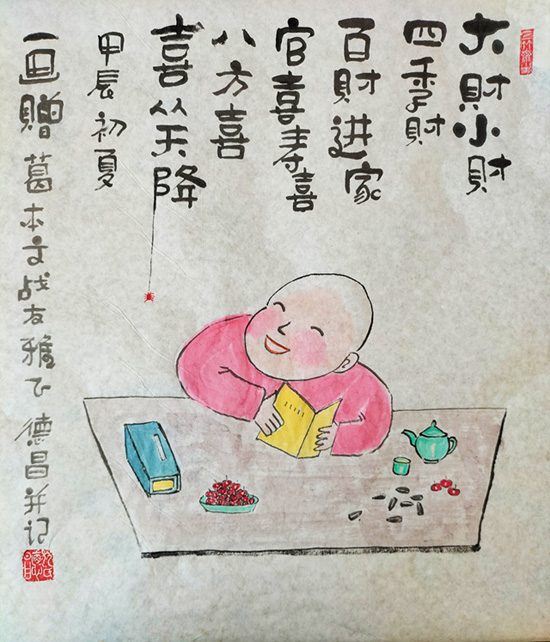 大財小財
四季財
百財进家
官喜寿喜
八方喜
喜从天降
甲辰初夏
画赠葛本文战友雅正德昌并记